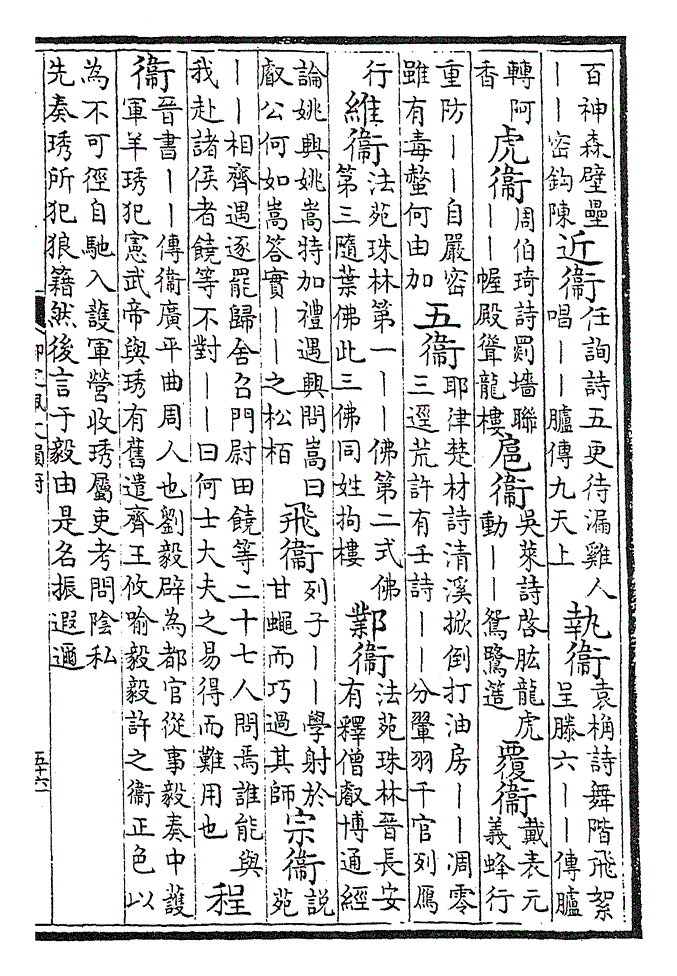 百神森壁壘
——密鈎陳
近衞
任詢詩五更待漏雞人
唱——臚傳九天上
執衞
袁桷詩舞階飛絮
呈滕六——傳臚
轉阿
香
虎衞
周伯琦詩罽墻聯
——幄殿聳龍樓
扈衞
吳萊詩啓肱龍虎
動——鴛鷺簉
覆衞
戴表元
義蜂行
重防——自嚴密
雖有毒螫何由加
五衞
耶律楚材詩清溪掀倒打油房——凋零
三逕荒許有壬詩——分翬羽千官列鴈
行
維衞
法苑珠林第一——佛第二式佛
第三隨葉佛此三佛同姓拘樓
鄴衞
法苑珠林晉長安
有釋僧叡博通經
論姚興姚嵩特加禮遇興問嵩曰
叡公何如嵩答實——之松栢
飛衞
列子——學射於
甘蠅而巧過其師
宗衞
説
苑
——相齊遇逐罷歸舍召門尉田饒等二十七人問焉誰能與
我赴諸侯者饒等不對——曰何士大夫之易得而難用也
程
衞
晉書——傳衞廣平曲周人也劉毅辟為都官從事毅奏中護
軍羊琇犯憲武帝與琇有舊遣齊王攸喻毅毅許之衞正色以
為不可徑自馳入護軍營收琇屬吏考問陰私
先奏琇所犯狼籍然後言于毅由是名振遐邇
五十六